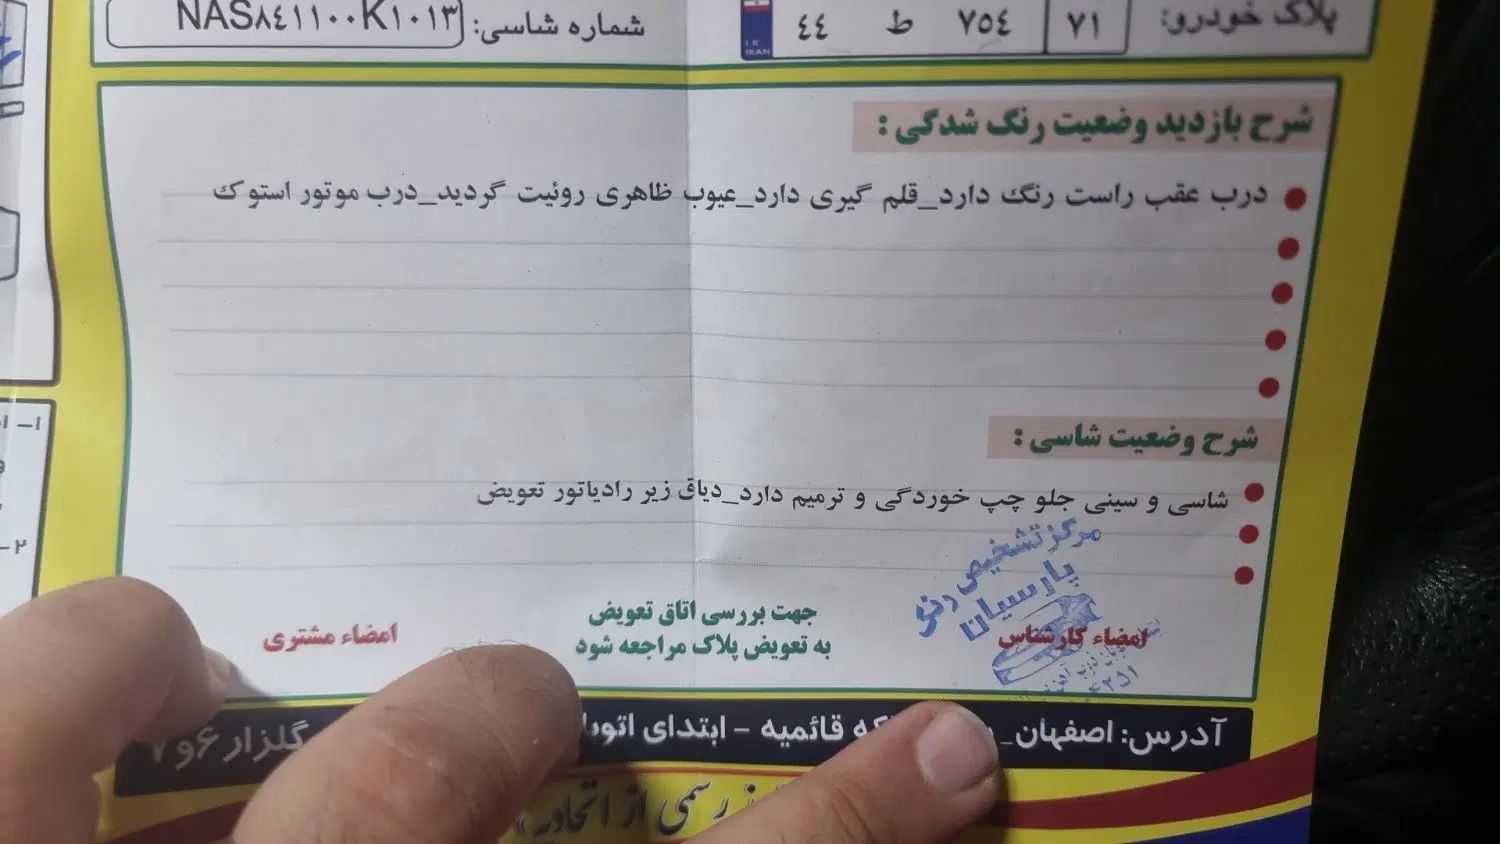 پلاک خودرو: ۷۱ ۷۵۴ ط ۴۴ I.R IRAN
شماره شاسی: NAS۸۴۱۱۰۰K۱۰۱۳
شرح بازدید وضعیت رنگ شدگی :
درب عقب راست رنگ دارد_قلم گیری دارد_عیوب ظاهری روئیت گردید_درب موتور استوک
شرح وضعیت شاسی :
شاسی و سینی جلو چپ خوردگی و ترمیم دارد_دیاق زیر رادیاتور تعویض
مرکز تشخیص رنگ
پارسیانا
امضاء کارشناس
جهت بررسی اتاق تعویض
به تعویض پلاک مراجعه شود
امضاء مشتری
آدرس: اصفهان_ قائمیه - ابتدای گلزار ۶و۷
رسمی از اتحادیه
۱-
۲-